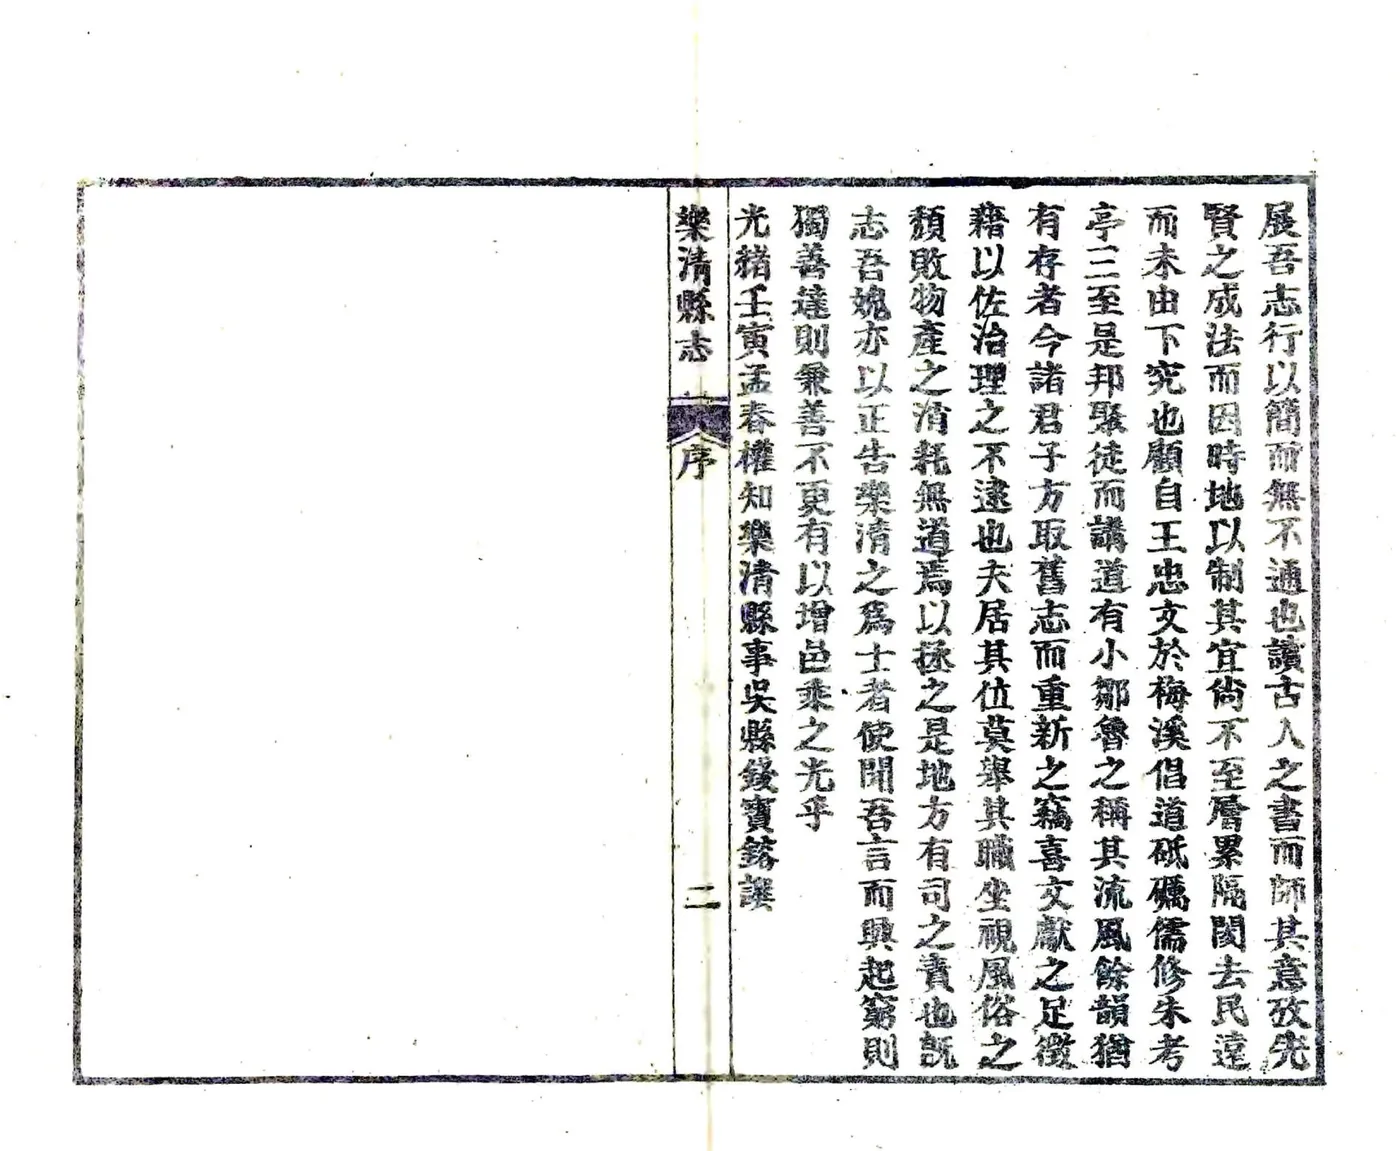 展吾志行以簡而無不通也讀古人之書而師其意攷先
賢之成法而因時地以制其宜尙不至層累隔閡去民遠
而未由下究也顧自王忠文於梅溪倡道砥礪儒修朱考
亭三至是邦聚徒而講道有小鄒魯之稱其流風餘韻猶
有存者今諸君子方取舊志而重新之竊喜文獻之足徵
藉以佐治理之不逮也夫居其位莫舉其職坐視風俗之
頹敗物產之消耗無道焉以拯之是地方有司之責也旣
志吾媿亦以正告樂清之爲士者使聞吾言而興起窮則
獨善達則兼善不更有以增邑乘之光乎
光緒壬寅孟春權知樂清縣事吳縣錢寶鎔譔
樂清縣志
序
二